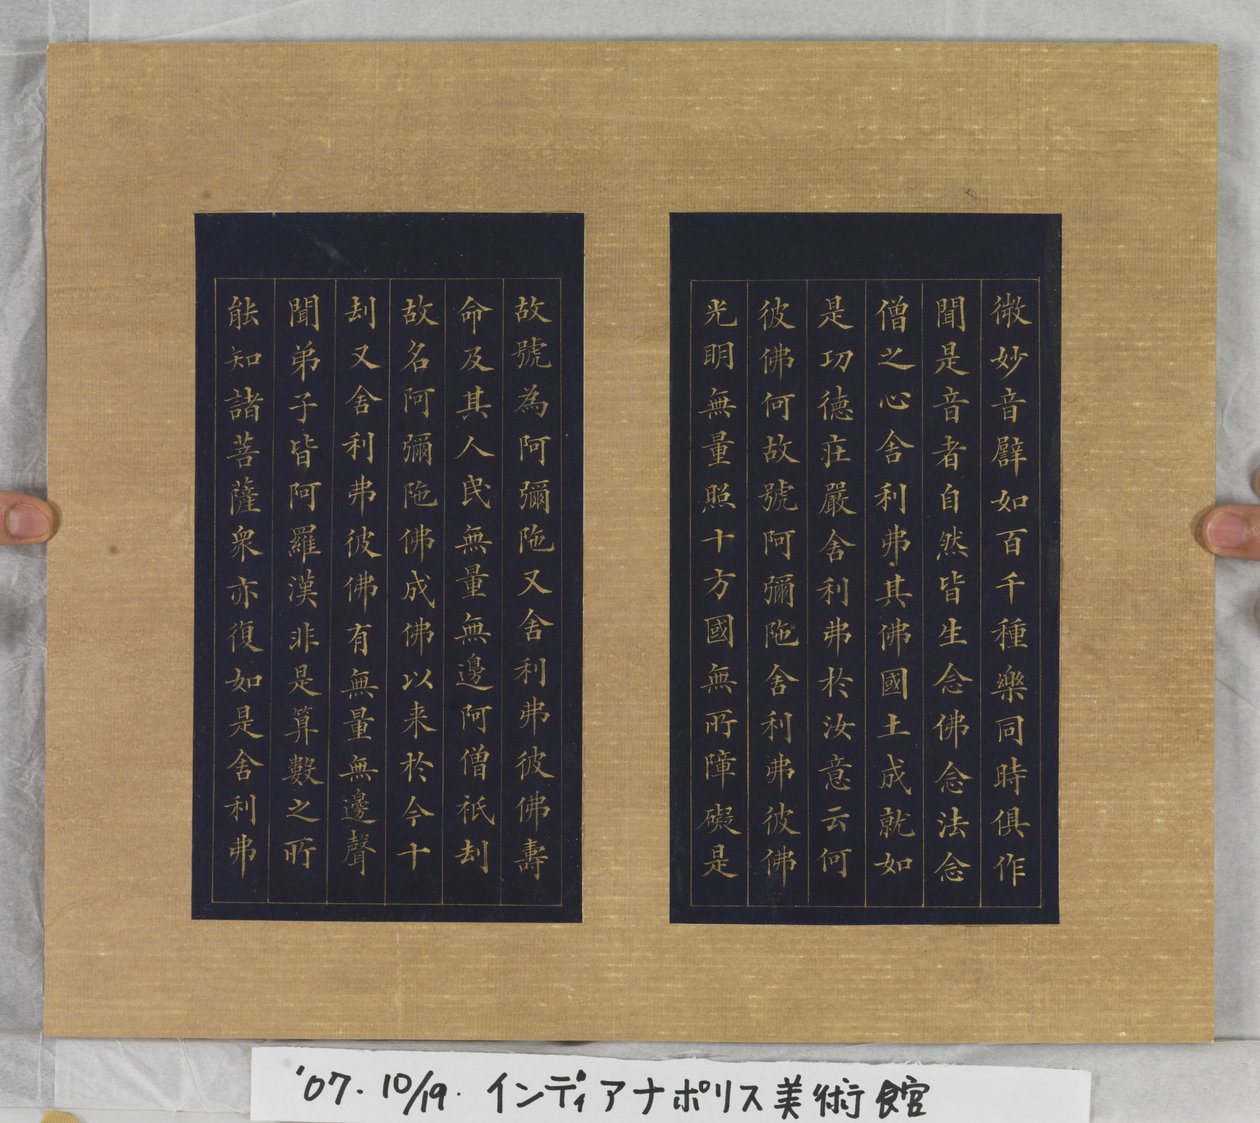 微妙音譬如百千種樂同時俱作
聞是音者自然皆生念佛念法念
僧之心舍利弗其佛國土成就如
是功德莊嚴舍利弗於汝意云何
彼佛何故號阿彌陁舍利弗彼佛
光明無量照十方國無所障礙是
故號為阿彌陁又舍利弗彼佛壽
命及其人民無量無邊阿僧祇刦
故名阿彌陁佛成佛以来於今十
刦又舍利弗彼佛有無量無邊聲
聞弟子皆阿羅漢非是算數之所
能知諸菩薩衆亦復如是舍利弗
'07.10/19. インディアナポリス美術館